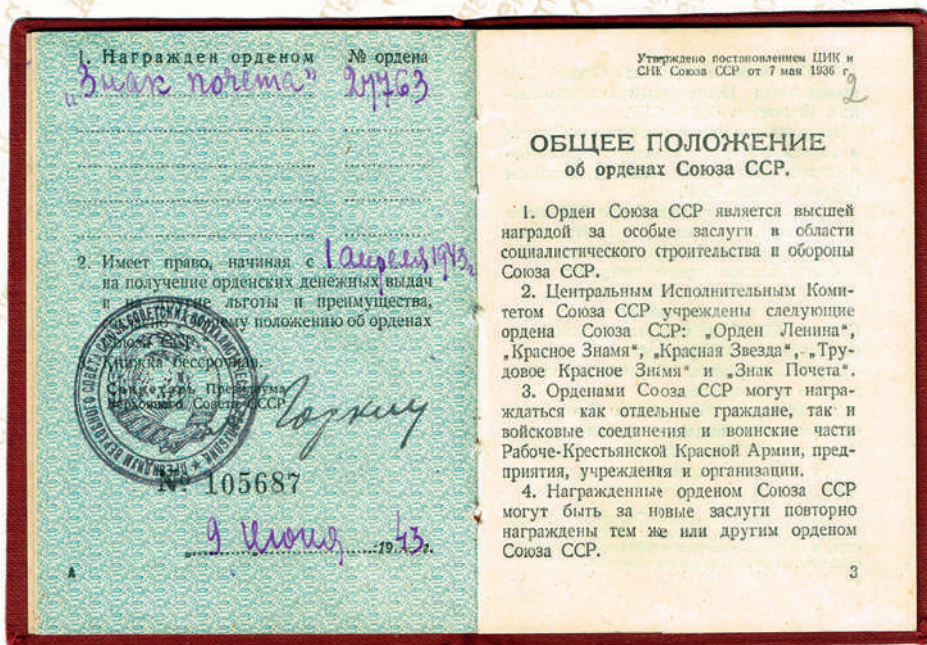 1. Награжден орденом № ордена
„Знак почета" 27763
2. Имеет право, начиная с 1 апреля 1943 г.
на получение орденских денежных выдач
и на другие льготы и преимущества,
положению об орденах
Союза ССР.
Книжка бессрочная.
Секретарь Президиума
Верховного Совета СССР
Горкин
№ 105687
9 июня 1943 г.
А
Утверждено постановлением ЦИК и
СНК Союза ССР от 7 мая 1936 г.
2
ОБЩЕЕ ПОЛОЖЕНИЕ
об орденах Союза ССР.
1. Орден Союза ССР является высшей
наградой за особые заслуги в области
социалистического строительства и обороны
Союза ССР.
2. Центральным Исполнительным Коми-
тетом Союза ССР учреждены следующие
ордена Союза ССР: „Орден Ленина",
„Красное Знамя", „Красная Звезда", „Тру-
довое Красное Знамя" и „Знак Почета".
3. Орденами Союза ССР могут награ-
ждаться как отдельные граждане, так и
войсковые соединения и воинские части
Рабоче-Крестьянской Красной Армии, пред-
приятия, учреждения и организации.
4. Награжденные орденом Союза ССР
могут быть за новые заслуги повторно
награждены тем же или другим орденом
Союза ССР.
3